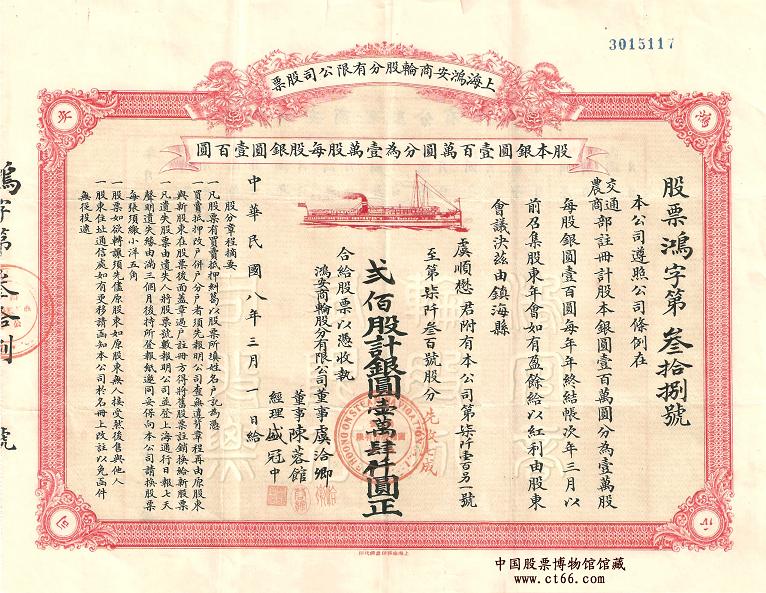 3015117
上海鴻安商輪股分有限公司股票
股本銀圓壹百萬圓分為壹萬股每股銀圓壹百圓
股票鴻字第叁拾捌號
本公司遵照公司條例在
交通
農商部註冊計股本銀圓壹百萬圓分為壹萬股
每股銀圓壹百圓每年年終結帳次年三月以
前召集股東年會如有盈餘給以紅利由股東
會議決茲由鎮海縣
虞順懋君附有本公司第柒仟壹百另一號
至第柒仟叁百號股分
弍佰股計銀圓壹萬肆仟圓正
先收七成
合給股票以憑收執
鴻安商輪股分有限公司董事虞洽卿
董事陳蓉館
經理盛冠中
中華民國八年三月一日給
股分章程摘要
一凡股票有買賣抵押糾葛以股票所填姓名戶記為憑
一買賣抵押改戶併戶分戶者須先報明公司查無違背章程再由原股東
與新股東在股票後面蓋章過戶註冊方得將舊股票註銷換給新股票
一凡遺失股票由遺失人將股票號數報明公司並登上海通行日報七天
聲明遺失緣由滿三個月後持所登報紙邀同妥保向本公司請換股票
每張須繳小洋五角
一股票如欲轉讓須先儘原股東如原股東無人接受然後售與他人
一股東住址通信處如有更移請函知本公司於名冊上改註以免函件
無從投遞
鴻字第叁拾捌號
中国股票博物馆馆藏
www.ct66.com